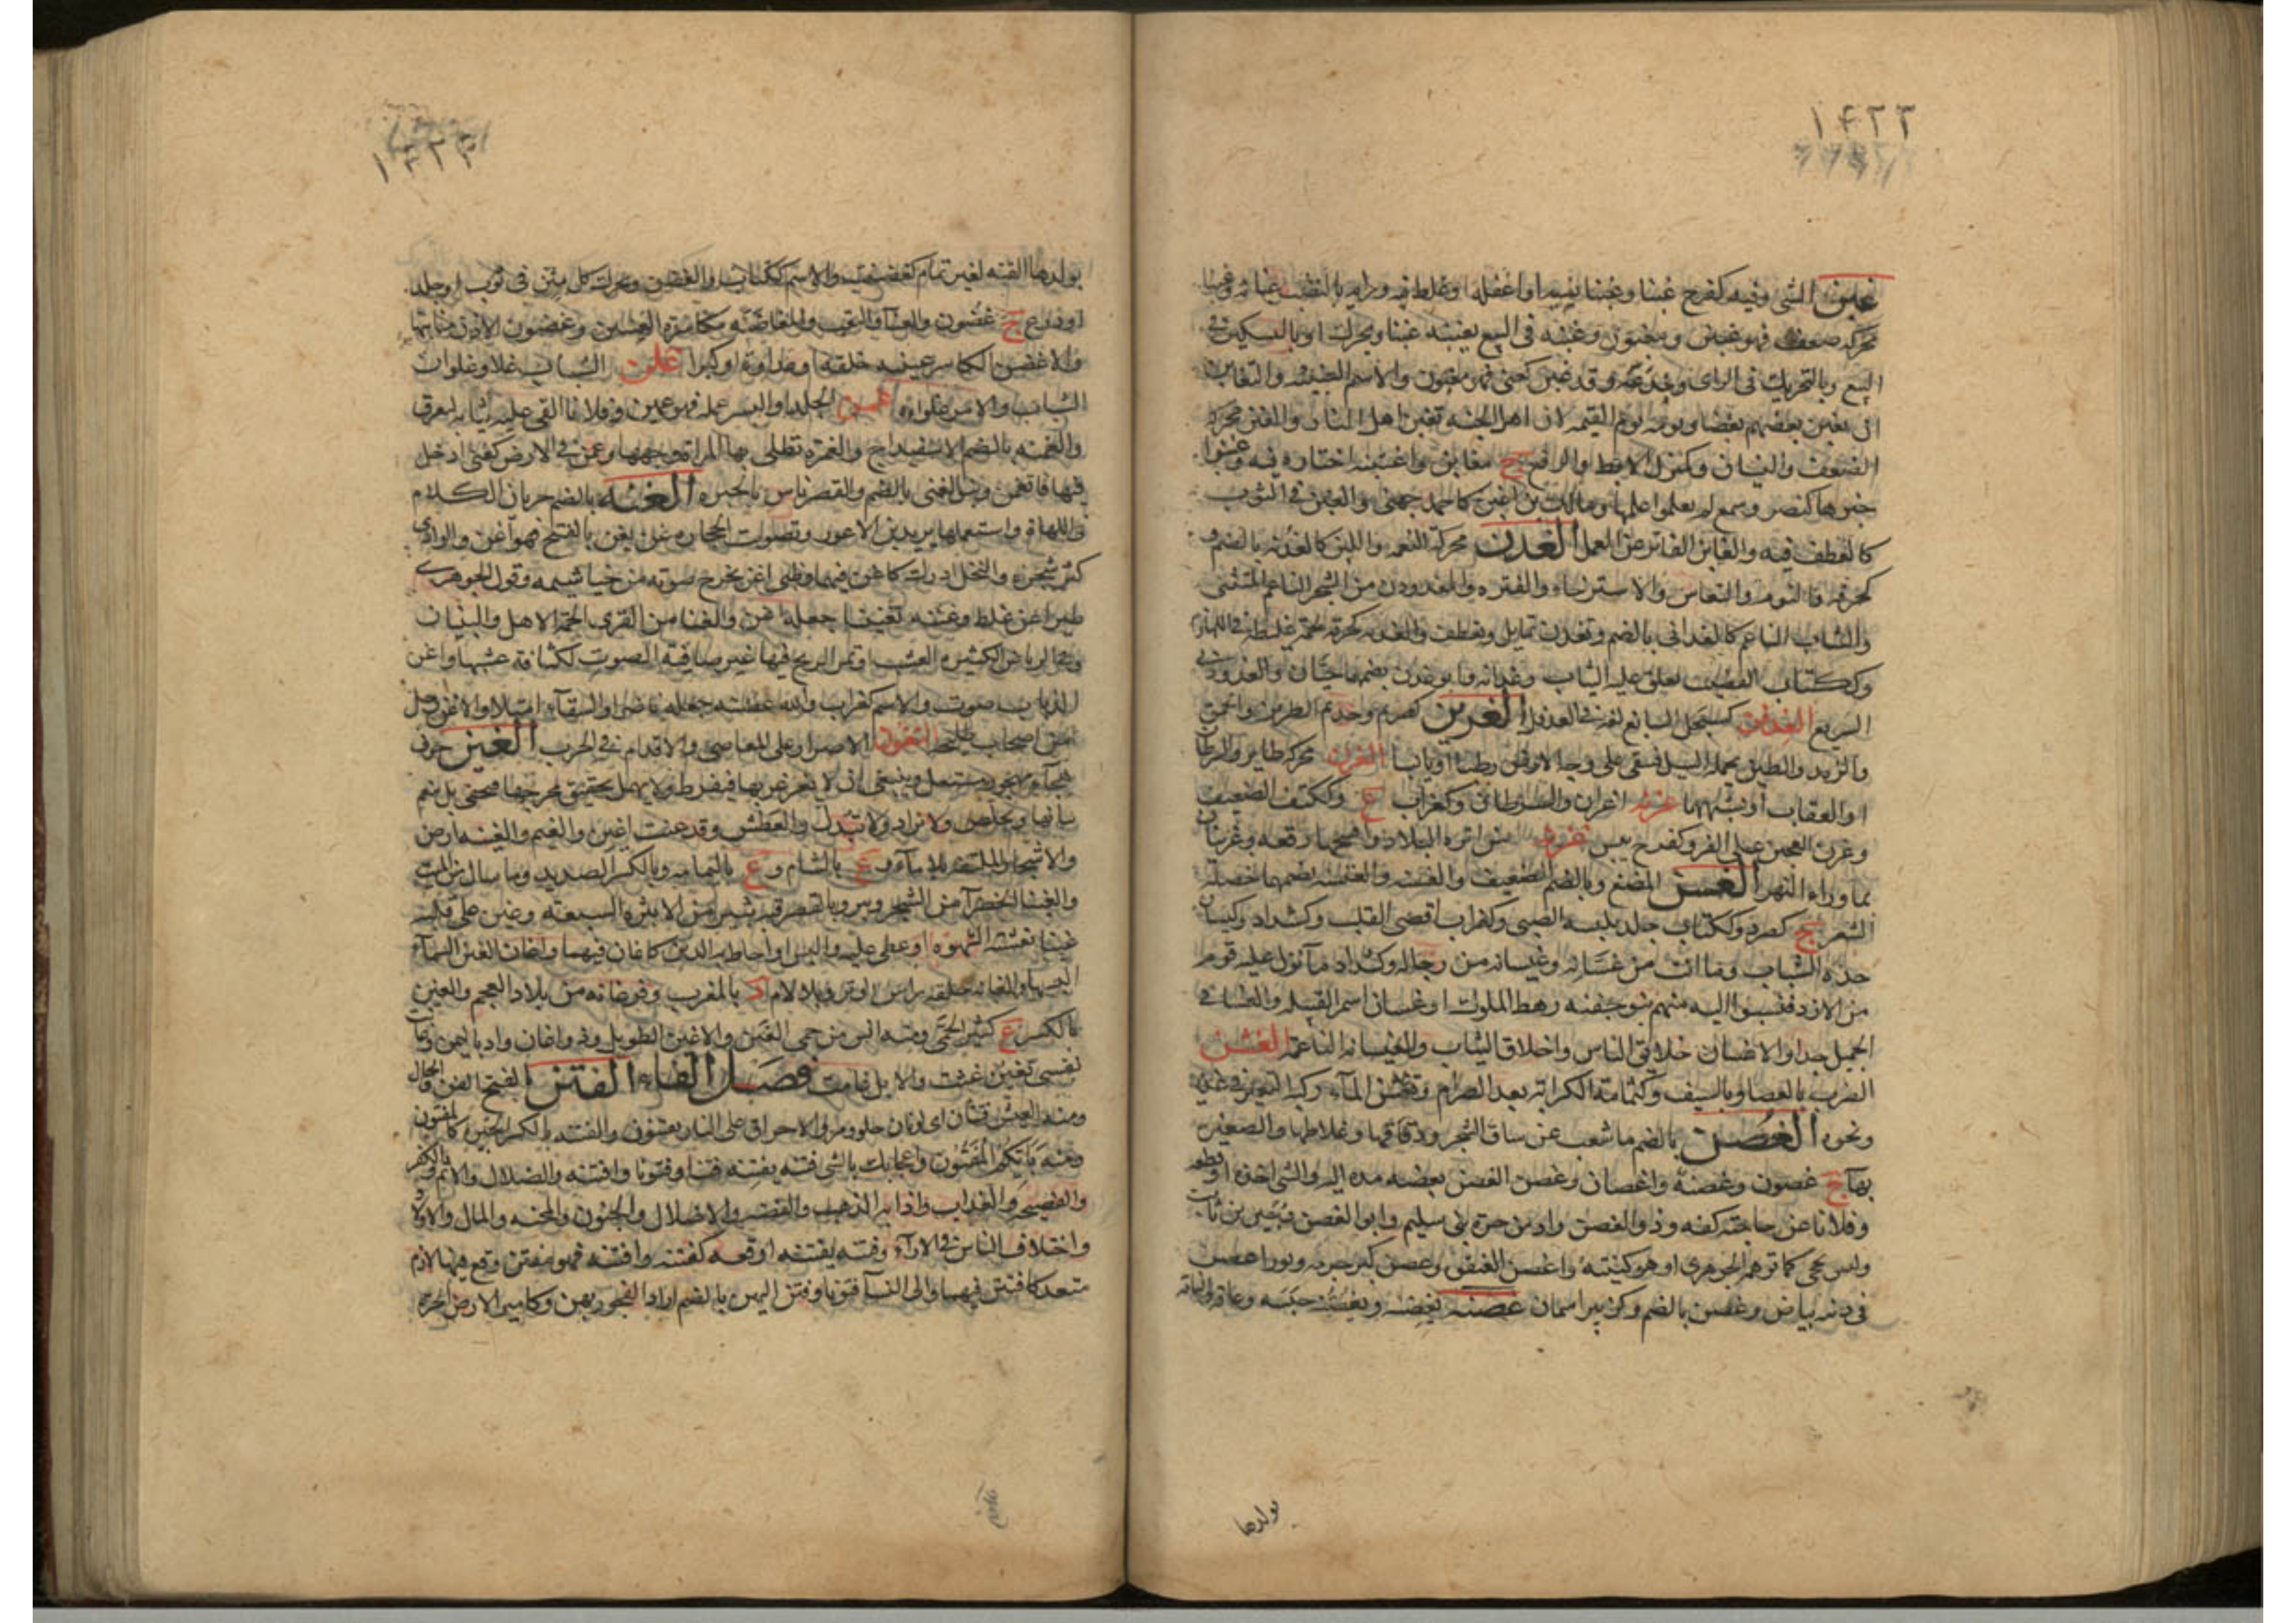 ١٤٢٢
غبن الشي وفيه كفرح غبنا وغبنا نسيه او اغفله او غلط فيه ورايه بالنصب غبانة وغبنا
محركة ضعف فهو غبين ومغبون وغبنه في البيع يغبنه غبنا ويحرك او بالتسكين في
البيع وبالتحريك في الراى وخدعه وقد غبن كعنى فهو مغبون والاسم الغبينه والتغابن
ان يغبن بعضهم بعضا ويوم التغابن يوم القيمه لان اهل الجنه تغبن اهل النار والغبن محركة
الضعف والنسيان وكمنزل الابط والرفغ ج مغابن واغتبنه اختباه فيه وغبنوا
خبرها كنصر وسمع لم يعلموا علمها ومالك بن اغبن كاحمد جهنى والغبن في الثوب
كالعطف فيه والغابن الفاتر عن العمل الغدن محركة النعمه واللين كالغدنه بالضم و
كحزقه والنوم والنعاس والاسترخاء والفتره والمغدودن من الشجر الناعم المتثنى
والشاب الناعم كالغدانى بالضم وتغدن تمايل وتعطف والغدنه كحزقه لحمه غليظة في اللهازم
وككتاب القضيب تعلق عليه الثياب وغدانه وابو غدن بضمهما حيان والغدودنى
السريع الغدفن كسبحل السابغ لغة في الغدفل الغرين كصريم وحذيم الطين والحمق
والزبد والطين يحمله السيل فيبقى على وجه الارض رطبا او يابسا الغرن محركة طاير والسرطان
او العقاب او شبههما ج اغران والسرطان وكغراب ع وككتف الضعيف
وغرن العجين على الفرو كفرح يبس
بما وراء النهر الغسن المضغ وبالضم الضعيف والغسنه والغسنه بضمهما خصلة
الشعر ج كصرد وككتاب جلد يلبسه الصبى وكغراب اقصى القلب وكشداد وكيسان
حدة الشباب وما انت من غسانه وغيسانه من رجاله وكشداد ماء نزل عليه قوم
من الازد فنسبوا اليه منهم بنو جفنه رهط الملوك او غسان اسم القبيله والغسانى
الجميل جدا والاغسان خلائق الناس واخلاق الثياب والغيسانه الناعمة الغشن
الضرب بالعصا وبالسيف وكثمامة الكرابة بعد الصرام وتغشن الماء ركبه البعر في غدير
ونحوه الغصن بالضم ما تشعب عن ساق الشجر ودقاقها وغلاظها والصغيره
بهاء ج غصون وغصنة واغصان وغصن الغصن يغصنه مده اليه والشى اخذه او قطعه
وفلانا عن حاجته كفه وذو الغصن واد من حرة بنى سليم وابو الغصن دجين بن ثابت
وليس بجحى كما توهم الجوهرى او هو كنيته واغصن العنقود وغصن كبر حبه وثور اغصن
في ذنبه بياض وغصن بالضم وكزبير اسمان غضنه يغضنه ويغضنه حبسه وعاقه والناقة
بولدها

١٤٢٣
بولدها القته لغير تمام كغضنت والاسم ككتاب والغضن ويحرك كل تثن في ثوب او جلد
او درع ج غضون والعنا والتعب والمغاضنه مكاسرة العينين وغضون الاذن مثانيها
والاغضن الكاسر عينه خلقة او عداوة او كبرا غلن الشباب غلا وغلوان
الشباب والامر غلواوه غمن الجلد او البسر غمله فهو غمين وفلانا القى عليه ثيابه ليعرق
والغمنه بالضم الاسفيداج والغمرة تطلى بها المراة وجهها وغمن في الارض كعنى ادخل
فيها فانغمن الغنه بالضم جريان الكلام
في اللهاة واستعملها يزيد بن الاعور في تصويت الحجاره غن يغن بالفتح فهو اغن والوادى
كثر شجره والنخل ادرك كاغن فيهما وظبى اغن يخرج صوته من خياشيمه وقول الجوهرى
طير اغن غلط وغننه تغنينا جعله اغن والغنا من القرى الجمة الاهل والبنيان
ومن الرياض الكثيره العشب او تمر الريح فيها غير صافية الصوت لكثافة عشبها واغن
الذباب صوت والاسم كغراب والله غصنه جعله ناضرا والسقاء امتلا والاغن رجل
من اصحاب التغون الاصرار على المعاصى والاقدام في الحرب الغين حرف
هجاء مجهور مستعل وينبغى ان لا يغرغر بها فيفرط ولا يهمل تحقيق مخرجها فتخفى بل ينعم
بيانها وتخلص ولا تزاد ولا تبدل والعطش وقد غنت اغين والغيم والغينه ارض
والاشجار الملتفة بلا ماء و ع بالشام و ع باليمامه وبالكسر الصديد وما سال من الميت
والغينا الخضراء من الشجر وبير وبالقصر قنة ثبير من الاثبره السبعه وغين على قلبه
غينا تغشته الشهوة او غطى عليه والبس او احاط به الرين كاغان فيهما واغان الغين السماء
البسها والغانه حلقه راس الوتر وبلا لام د بالمغرب وفرغانه من بلاد العجم والغين
بالكسر ع كثير الحمى ومنه انس من حمى الغين والاغين الطويل وذو اغان واد باليمن وغانت
نفسى تغين غثت والابل غامت فصل الفاء الفتن بالفتح الفن والحال
ومنه العيش فتنان اى لونان حلو ومر والاحراق على النار يفتنون والفتنه بالكسر الخبره كالمفتون
ومنه بايكم المفتون واعجابك بالشى فتنه يفتنه فتنا وفتونا وافتنه والضلال والاثم والكفر
والفضيحة والعذاب واذابه الذهب والفضه والاضلال والجنون والمحنه والمال والاولاد
واختلاف الناس في الاراء وفتنه يفتنه اوقعه كفتنه وافتنه فهو مفتن وقع فيها لازم
متعد كافتتن فيهما والى النساء فتونا وفتن اليهن بالضم اراد الفجور بهن وكامير الارض الحرة